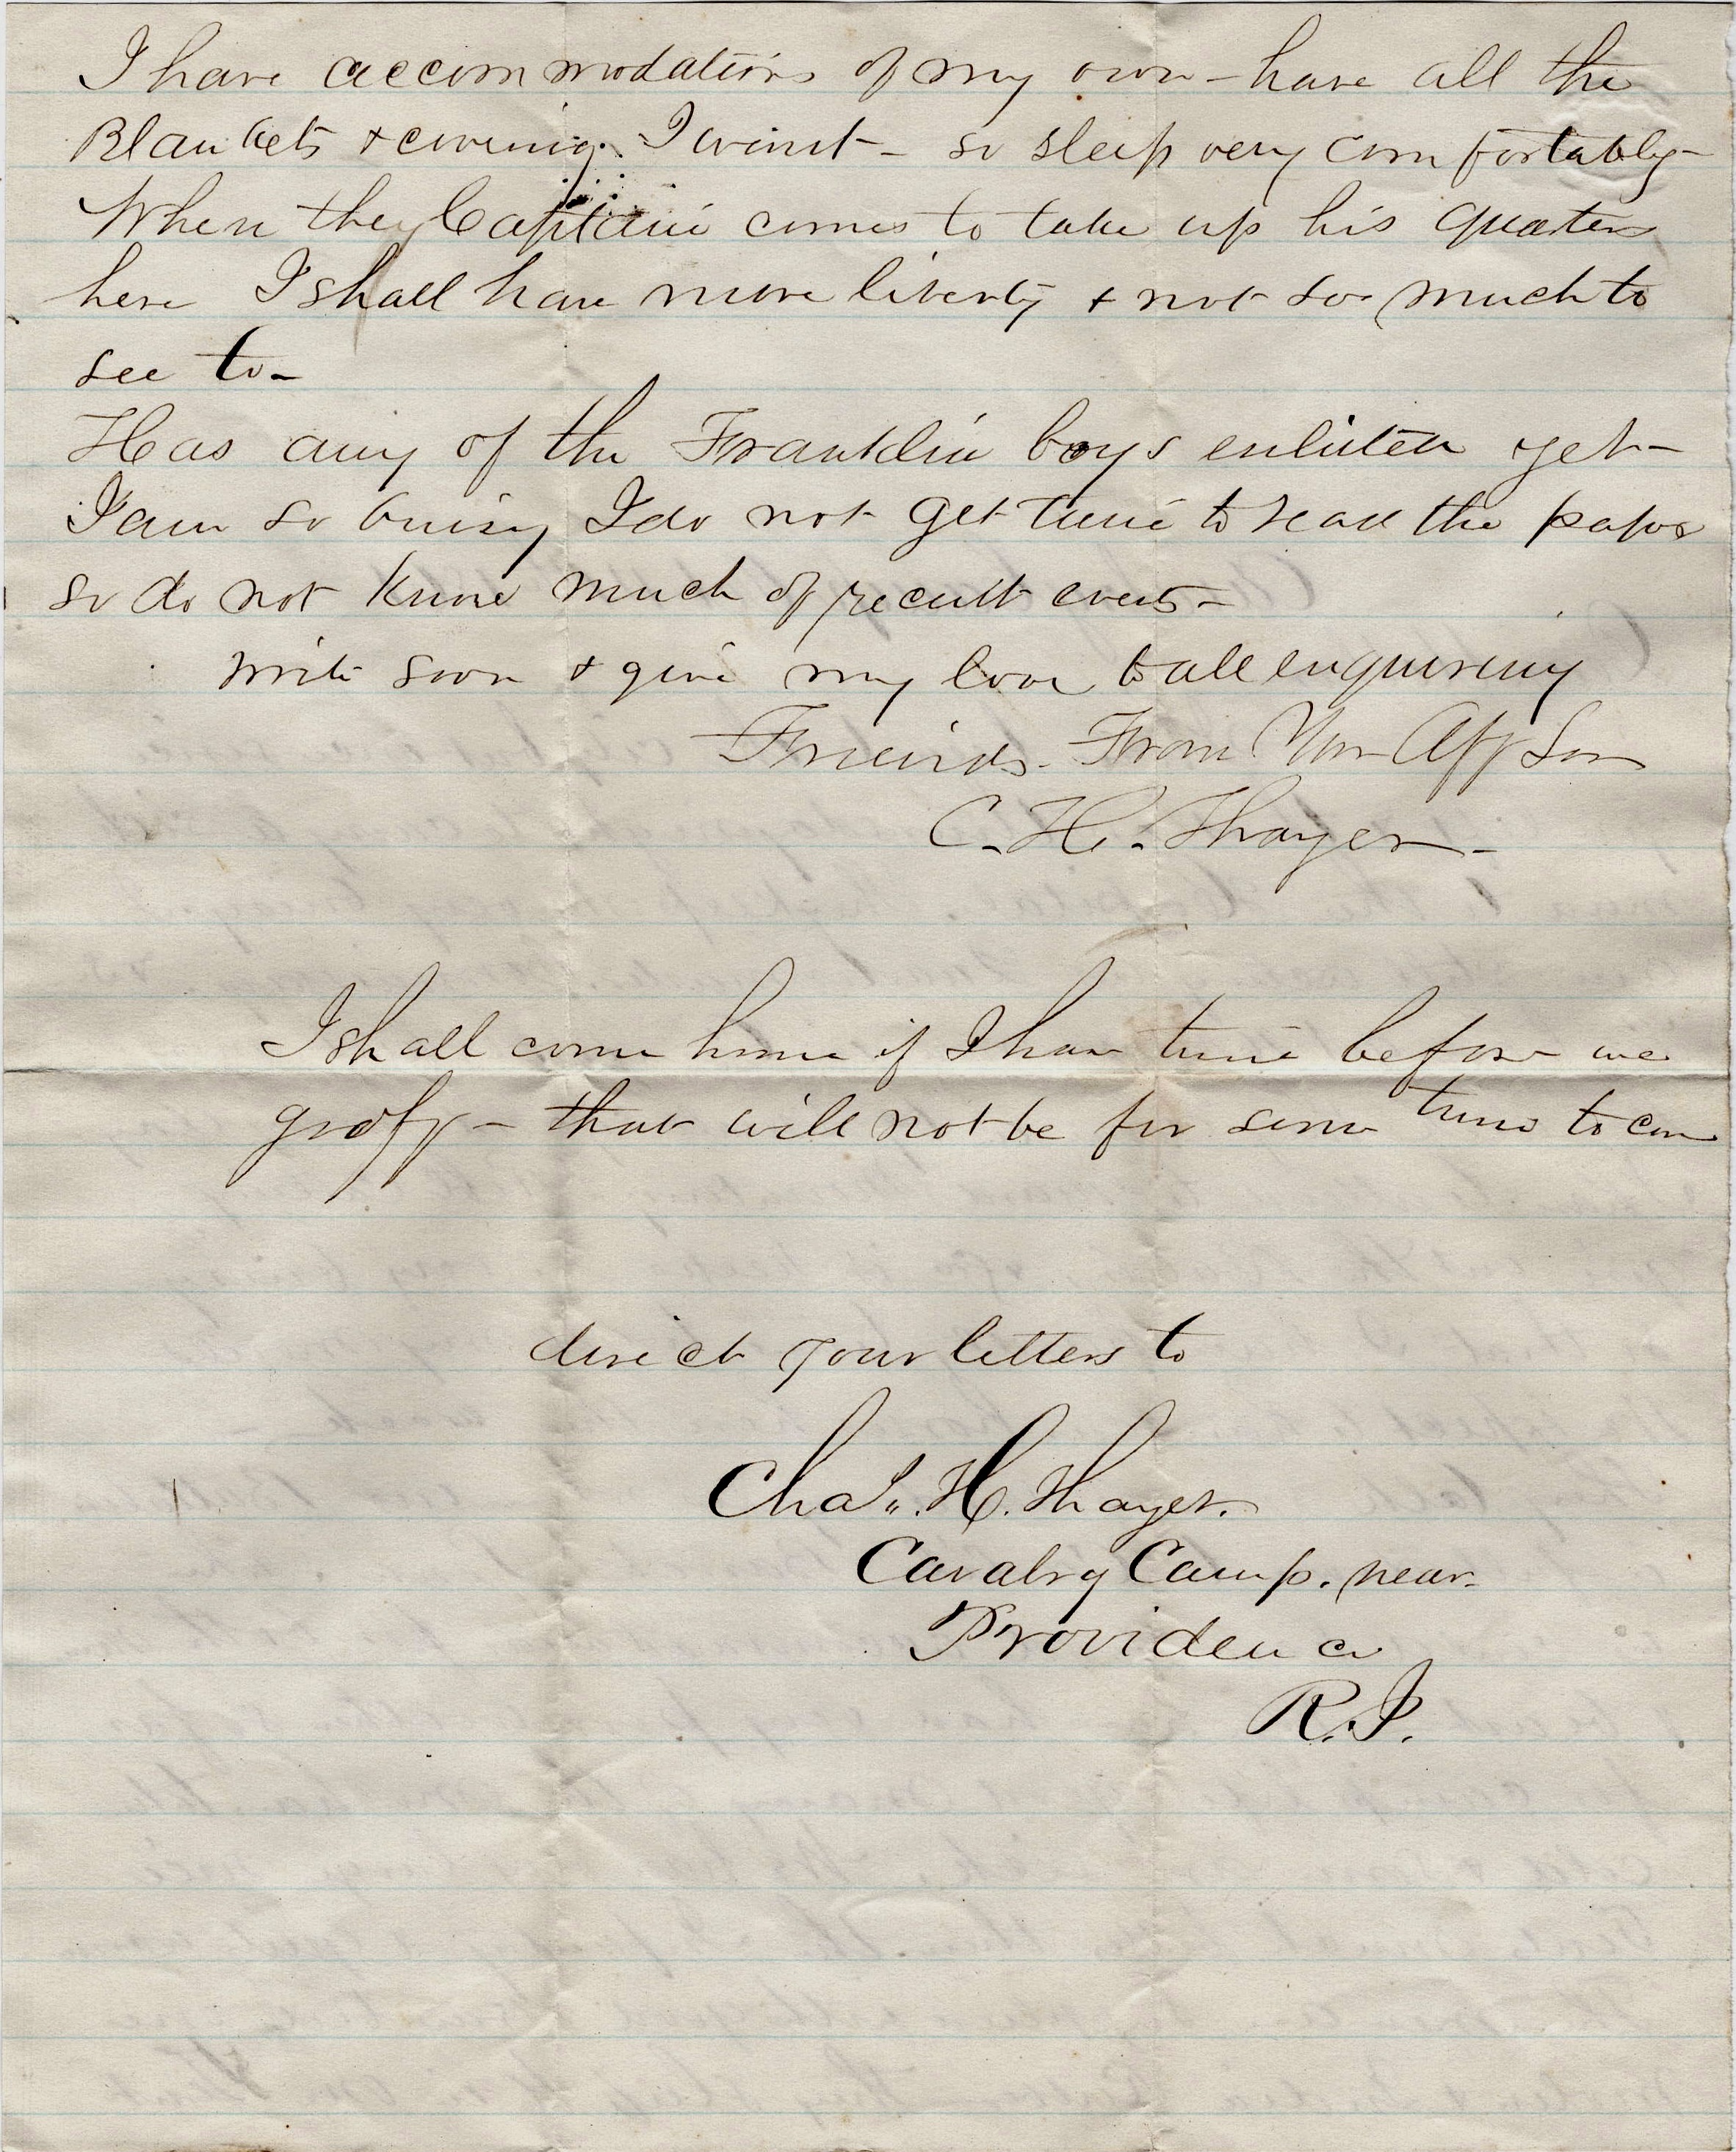 I have accommodations of my own - have all the
Blankets + covering I want - so sleep very comfortably -
When they Captain comes to take up his quaters
here I shall have more liberty + not so much to
see to -
Has any of the Franklin boys enlisted yet -
I am so buisy I do not get time to read the papers
so do not know much of recent events -
write soon + give my love to all enquireing
Friends - From Your Aff Son
C. H. Thayer -
I shall come home if I have time before we
go off - that will not be for some time to come
direct your letters to
Chas. H. Thayer.
Cavalry Camp. near.
Providence
R.I.